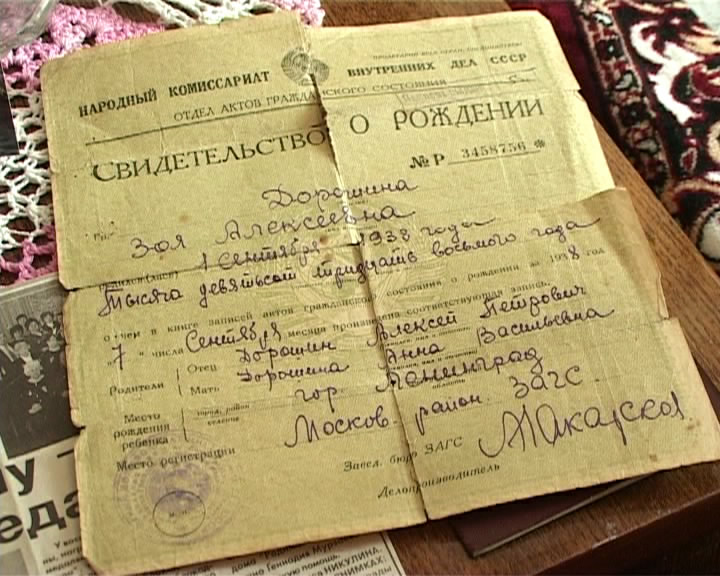 НАРОДНЫЙ КОМИССАРИАТ ВНУТРЕННИХ ДЕЛ СССР
ОТДЕЛ АКТОВ ГРАЖДАНСКОГО СОСТОЯНИЯ
СВИДЕТЕЛЬСТВО О РОЖДЕНИИ
№ Р 3458756 *
Дорошина
Зоя Алексеевна
1 Сентября 1938 года
Тысяча девятьсот тридцать восьмого года
о чем в книге записей актов гражданского состояния о рождении за 1938 год
"7" числа Сентября месяца произведена соответствующая запись.
Родители Отец Дорошин Алексей Петрович
Мать Дорошина Анна Васильевна
Место рождения ребенка город, район селения гор. Ленинград
Место регистрации Москов. район. ЗАГС.
Завед. бюро ЗАГС
Делопроизводитель
НИКУЛИНА.
СНИМКАХ: